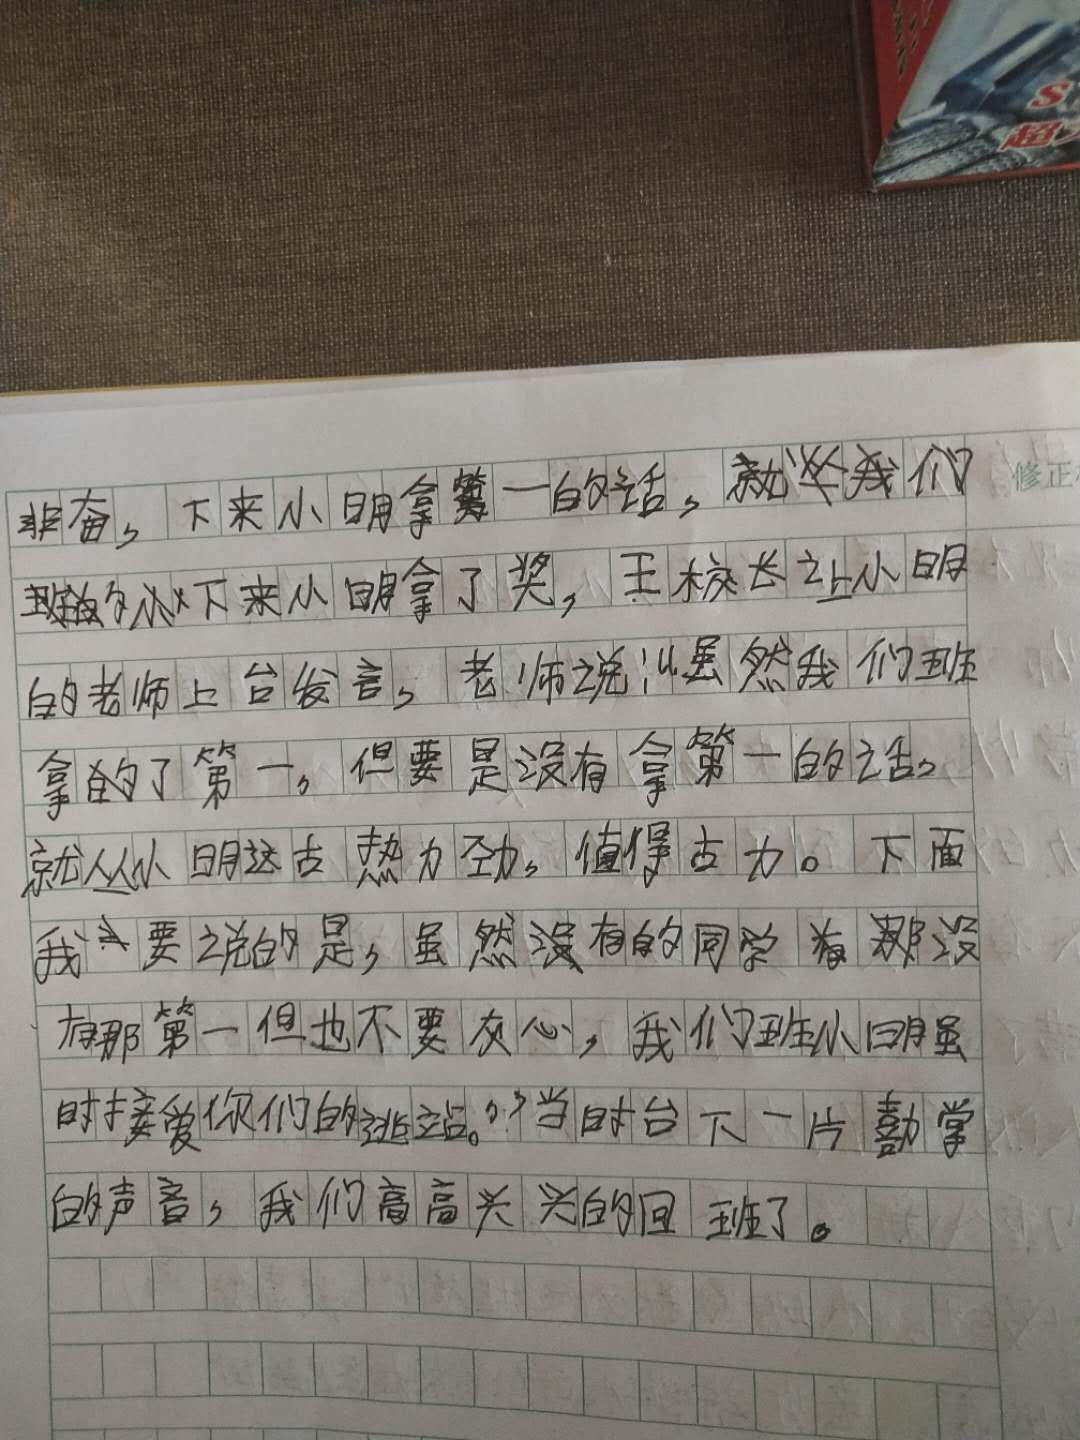 S
超
修正
非奋，下来小明拿第一的话，就 我们
下来小明拿了奖，王校长让小明
的老师上台发言，老师说：“虽然我们班
拿的了第一，但要是没有拿第一的话，
就从小明这古热力劲，值得古力。下面
我 要说的是，虽然没有的同学有那没
有那第一但也不要灰心，我们班小明虽
时接爱你们的逃站。”当时台下一片鼓掌
的声音，我们高高兴兴的回班了。